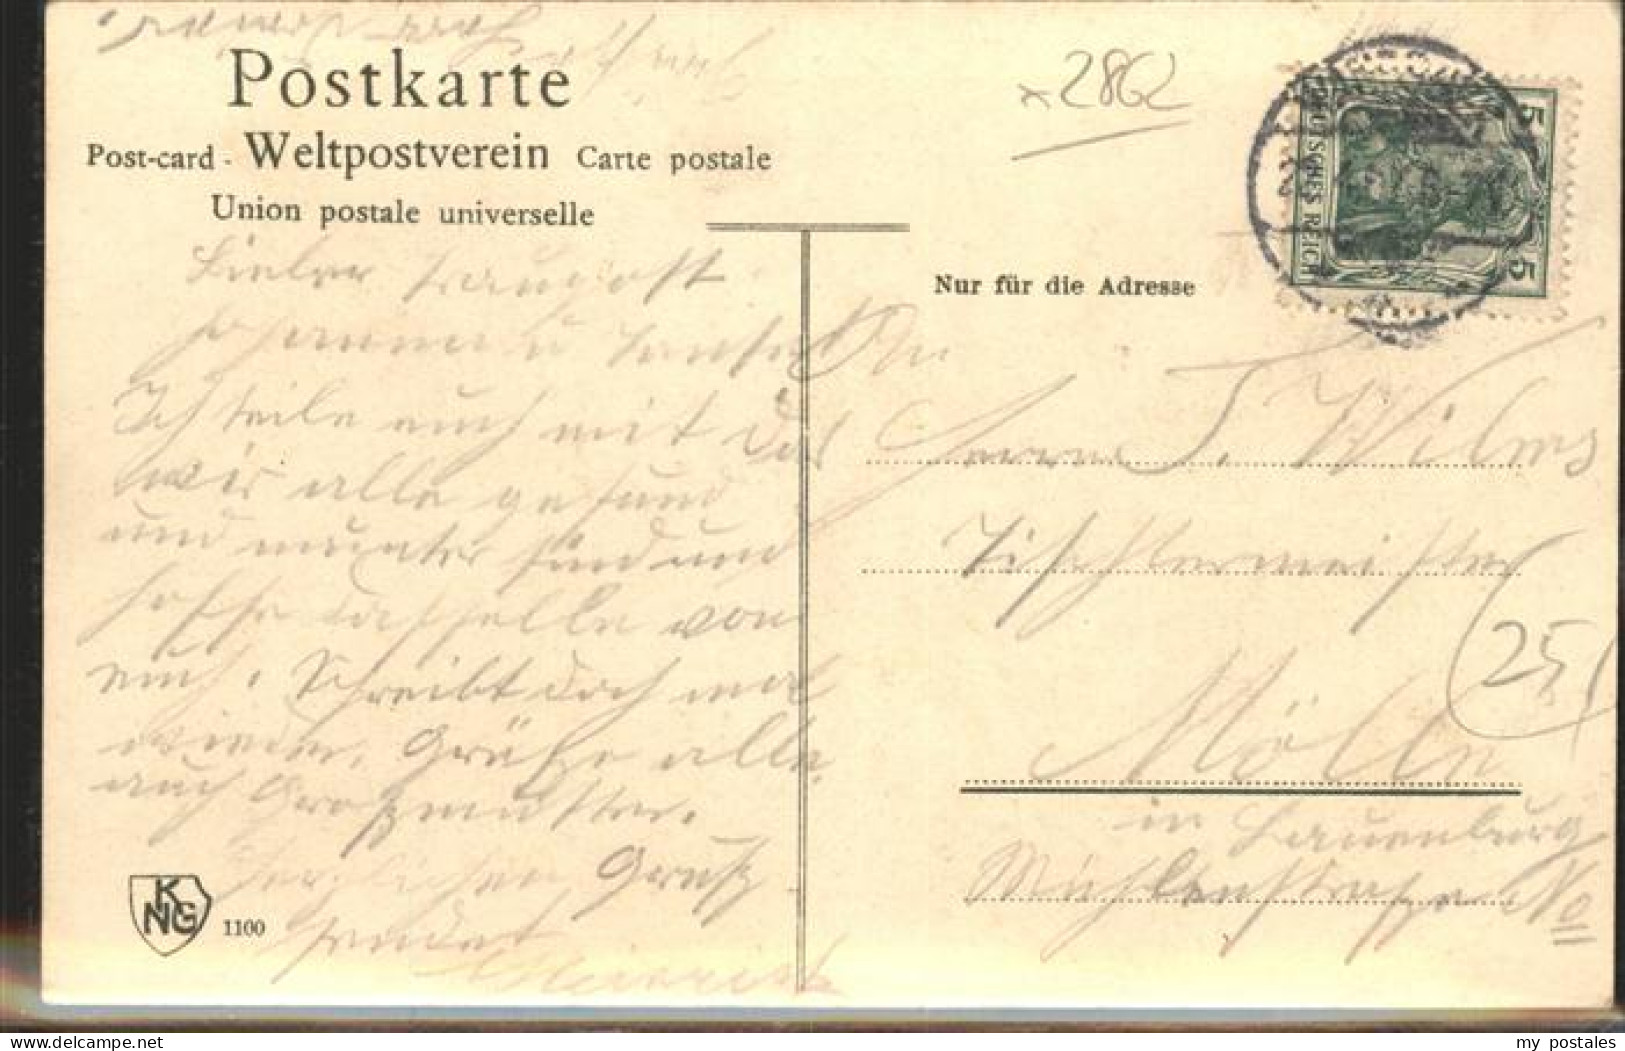 Postkarte
Post-card - Weltpostverein Carte postale
Union postale universelle
x 2862
DEUTSCHES REICH
5
5
Nur für die Adresse
Lieber
u
Ich teile euch mit das
wir alle gesund
und munter sind und
hoffe dasselbe von
euch. Schreibt doch mal
wieder. Grüße alle
auch Großmutter.
Herzlichen Gruß
sendet
Heinrich
An
Herrn J. Wilms
Tischlermeister
Mölln
in Lauenburg
Mühlenstraße No
25
KNG
1100
www.delcampe.net
my_postales